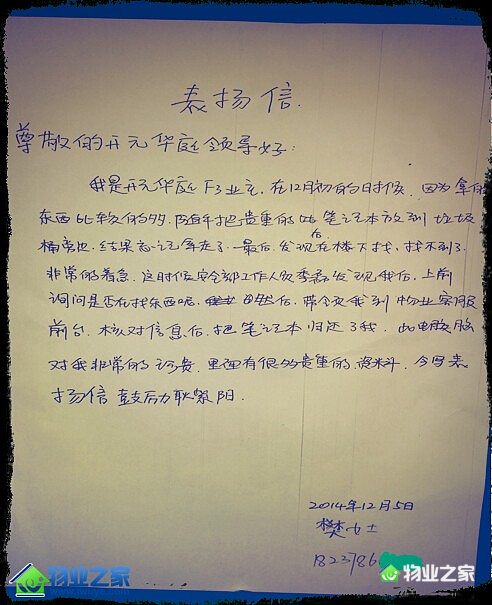 表扬信
尊敬的开元华庭领导好:
我是开元华庭F3业主,在12月初的时候,因为拿的
东西比较的多,随手把贵重的 笔记本放到垃圾
桶旁边,结果忘记拿走了,最后发现后在楼下找,找不到了
非常的着急,这时候安全部工作人员李 发现我后,上前
询问是否在找东西呢, 后,带领我到物业客服
前台,核对信息后,把笔记本归还了我,此电脑
对我非常的 贵,里面有很多贵重的资料,今写表
扬信鼓励 阳.
2014年12月5日
樊女士
1823786
物业之家
物业之家